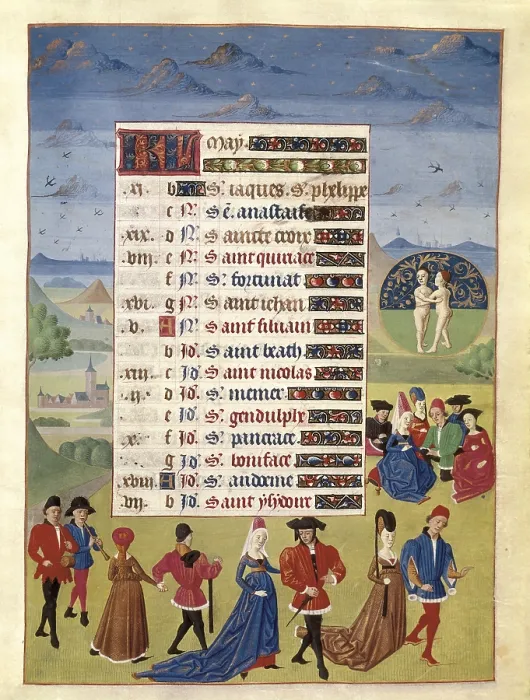 May.
.xi. b S. iaques. S. phelippe
c N. Sᵉ. anastaise
.xix. d N. Saincte croix
.viii. e N. Saint quiriace
f N. S. fortunat
.xvi. g N. Saint iehan
.v. A N. Saint siluain
b Id. Saint beath
.xiii. c Id. Saint nicolas
.ii. d Id. S. memer
e Id. S. gendulphe
.x. f Id. S. pancrace.
g Id. S. boniface
.xviii. A Id. S. andoenne
.vii. b Id. Saint